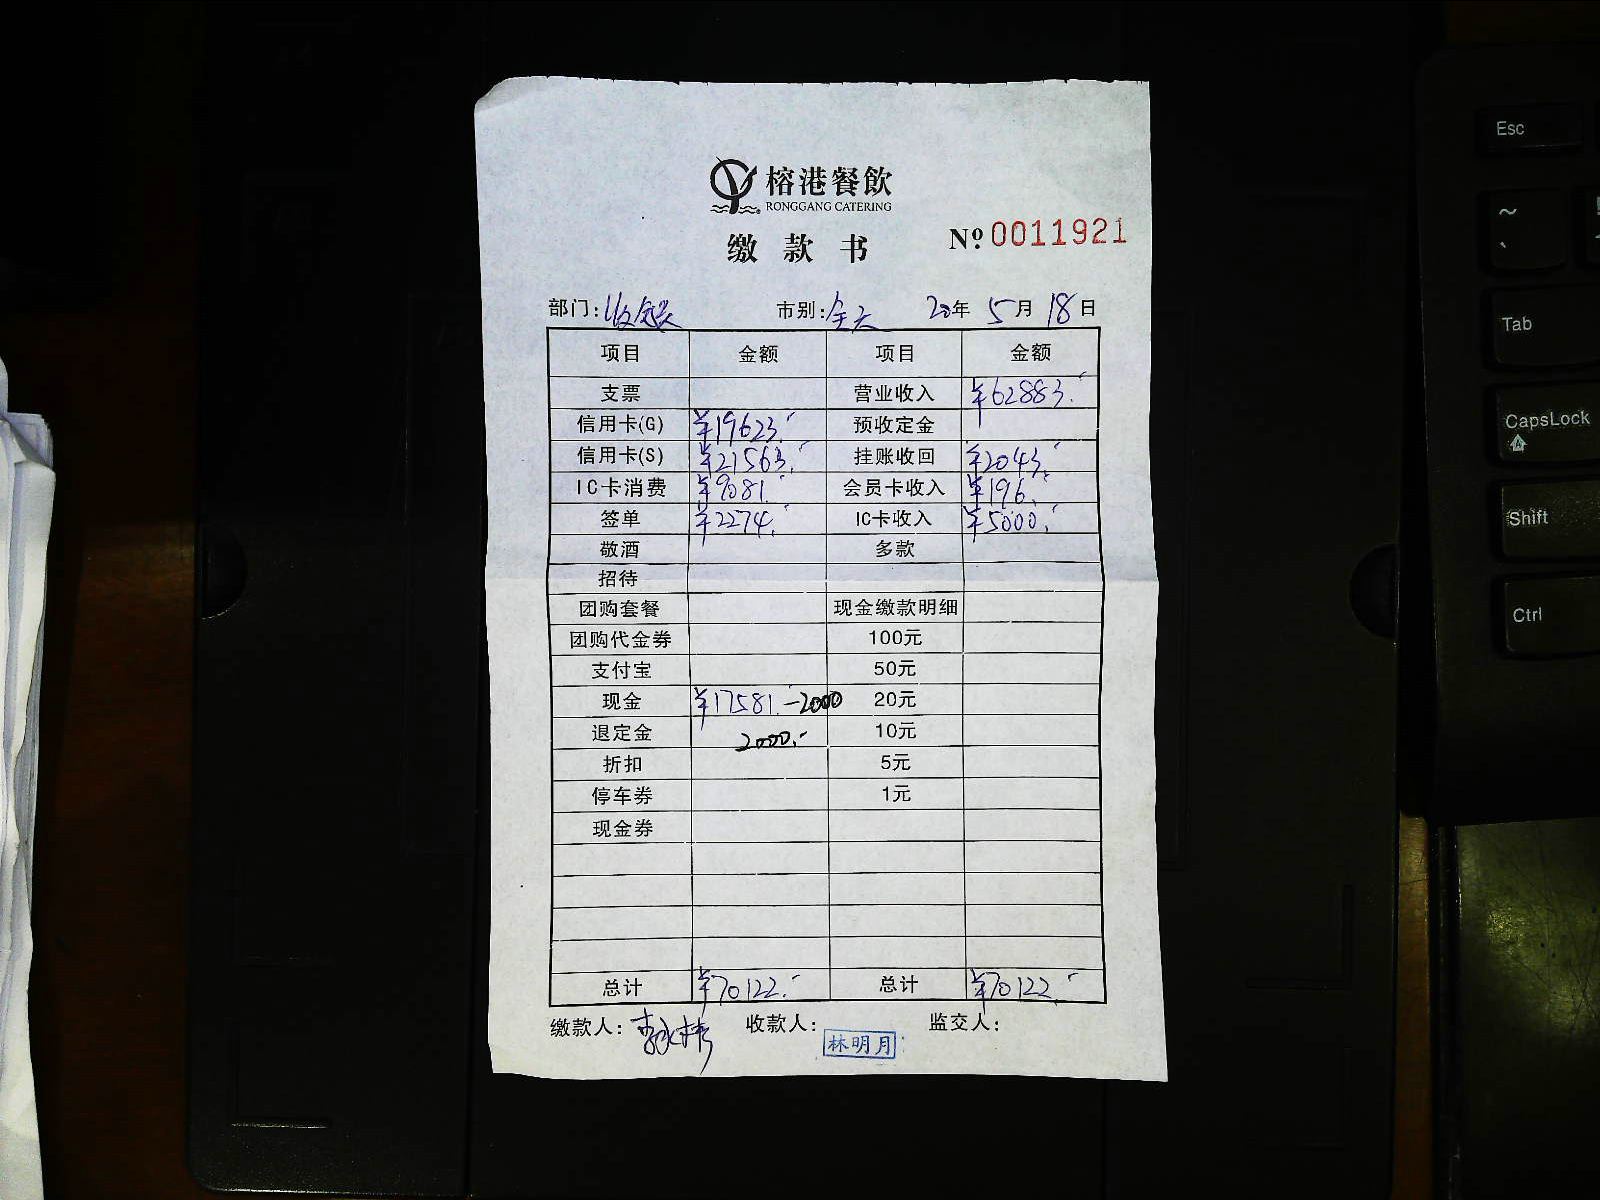 榕港餐飲
RONGGANG CATERING
缴款书
№ 0011921
部门: 收银 市别: 全天 20年 5月 18日
项目 金额 项目 金额
支票 营业收入 ¥62883.-
信用卡(G) ¥19623.- 预收定金
信用卡(S) ¥21563.- 挂账收回 ¥2043.-
IC卡消费 ¥9081.- 会员卡收入 ¥196.-
签单 ¥2274.- IC卡收入 ¥5000.-
敬酒 多款
招待
团购套餐 现金缴款明细
团购代金券 100元
支付宝 50元
现金 ¥17581.-2000 20元
退定金 2000.- 10元
折扣 5元
停车券 1元
现金券
总计 ¥70122.- 总计 ¥70122.-
缴款人: 收款人: 林明月 监交人:
Esc
~
`
Tab
CapsLock
Shift
Ctrl